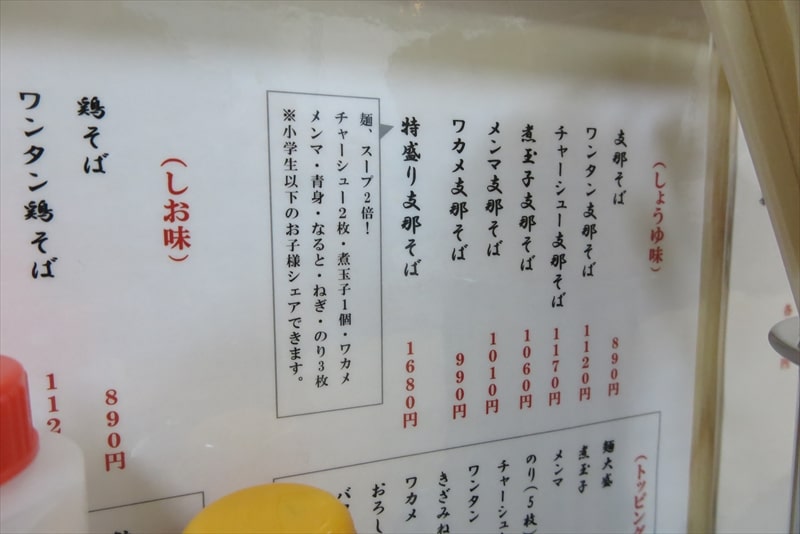 （しょうゆ味）
支那そば 890円
ワンタン支那そば 1120円
チャーシュー支那そば 1170円
煮玉子支那そば 1060円
メンマ支那そば 1010円
ワカメ支那そば 990円
特盛り支那そば 1680円
麺、スープ2倍！
チャーシュー2枚・煮玉子1個・ワカメ
メンマ・青身・なると・ねぎ・のり3枚
※小学生以下のお子様シェアできます。
（しお味）
鶏そば 890円
ワンタン鶏そば 112
（トッピング
麺大盛
煮玉子
メンマ
のり（5枚）
チャーシュー
ワンタン
きざみね
ワカメ
おろし
バ